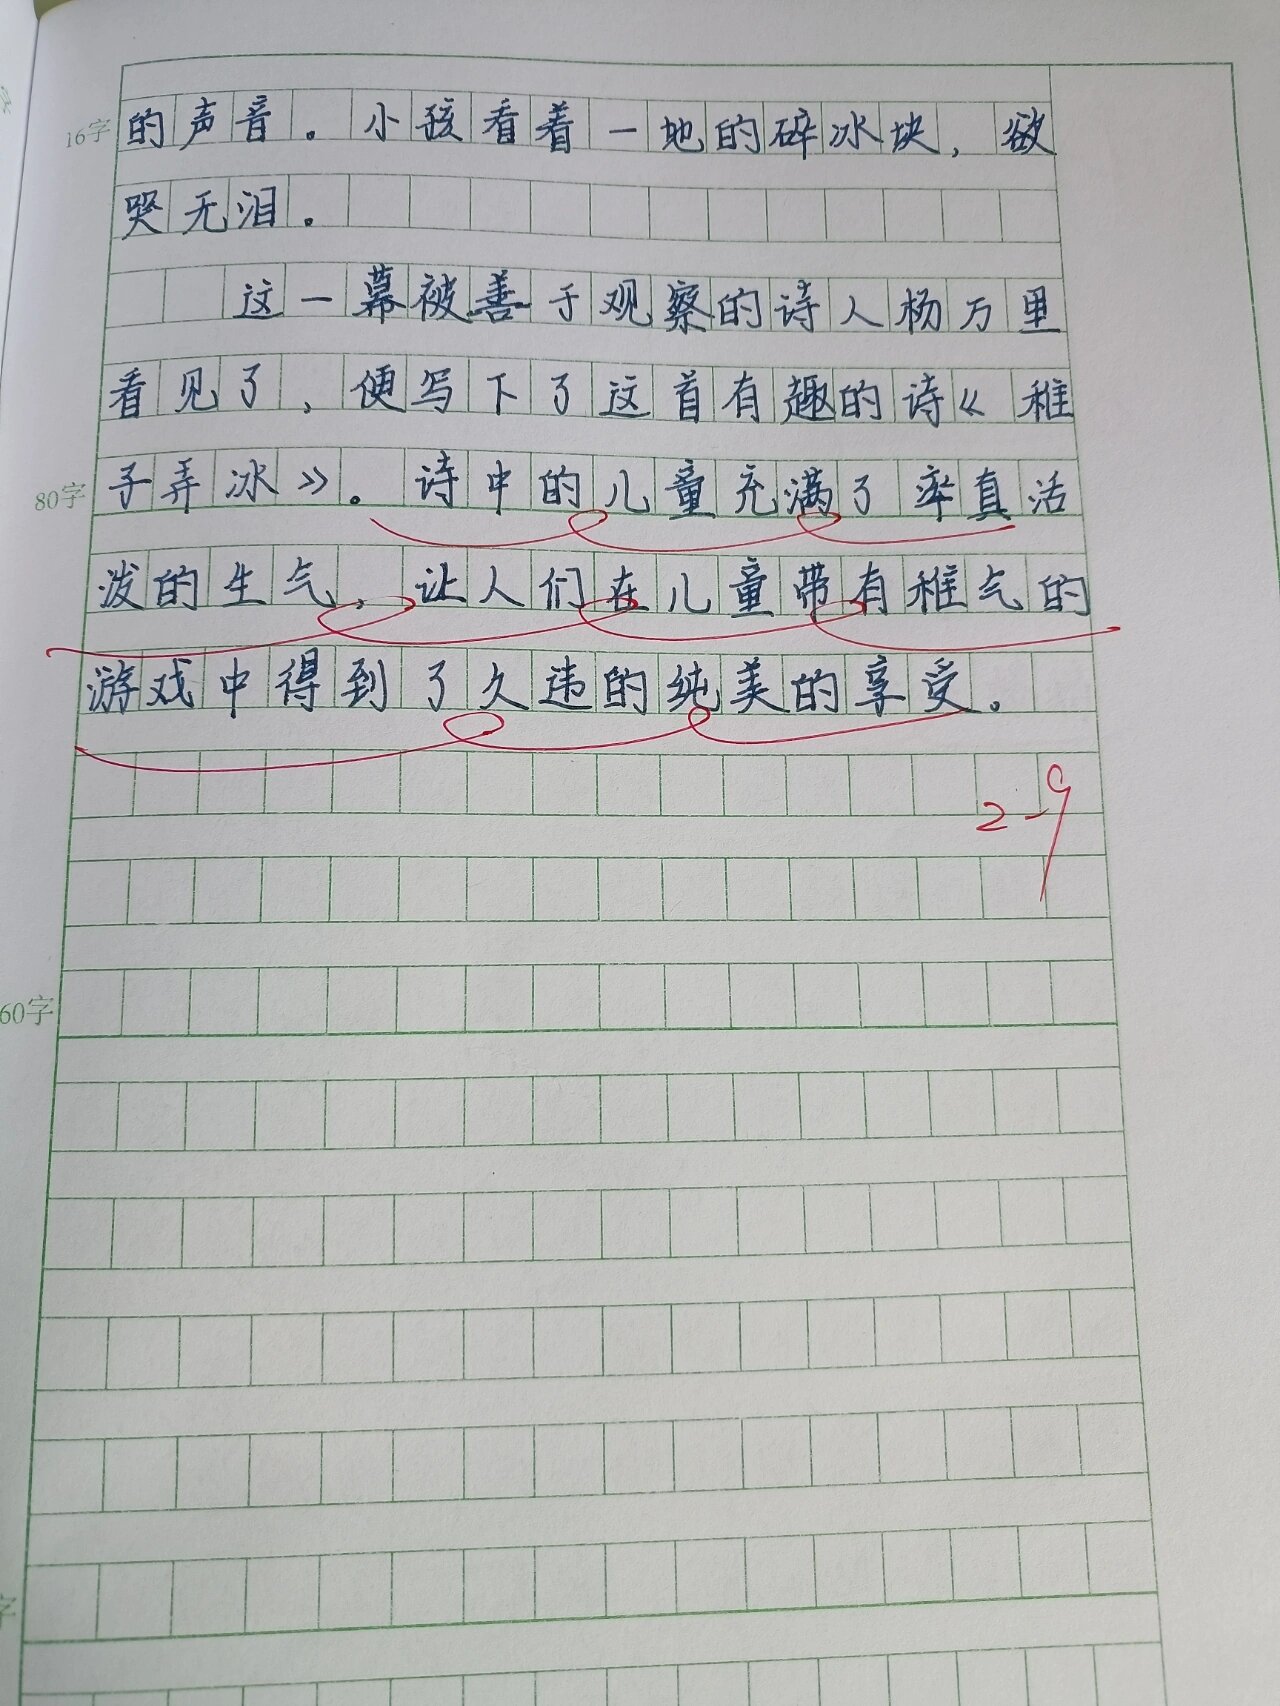 16字
的声音。小孩看着一地的碎冰块，欲
哭无泪。
这一幕被善于观察的诗人杨万里
看见了，便写下了这首有趣的诗《稚
80字
子弄冰》。诗中的儿童充满了率真活
泼的生气，让人们在儿童带有稚气的
游戏中得到了久违的纯美的享受。
2-9
60字
字